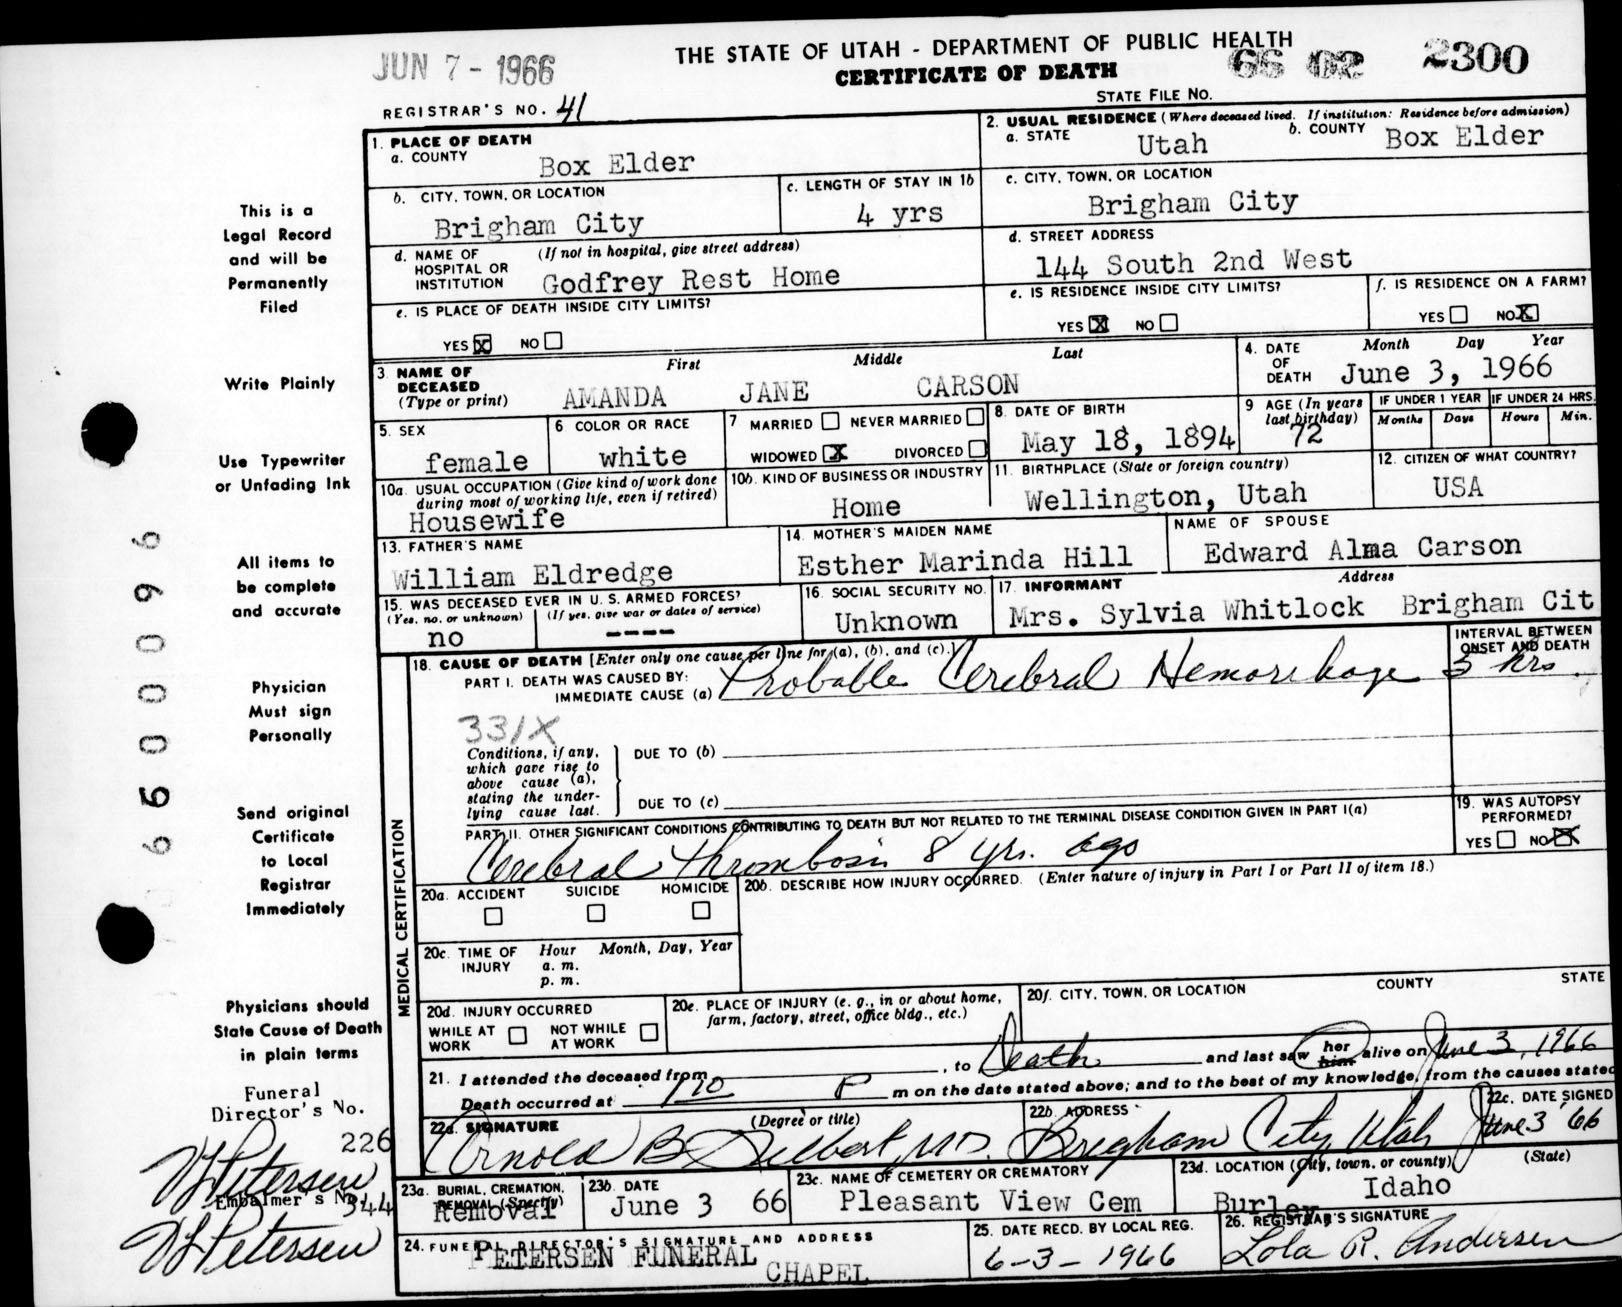 JUN 7 - 1966
THE STATE OF UTAH - DEPARTMENT OF PUBLIC HEALTH
CERTIFICATE OF DEATH
66 02 2300
STATE FILE NO.
REGISTRAR'S NO. 41
1. PLACE OF DEATH
a. COUNTY
Box Elder
2. USUAL RESIDENCE (Where deceased lived. If institution: Residence before admission)
a. STATE Utah b. COUNTY Box Elder
b. CITY, TOWN, OR LOCATION
Brigham City
c. LENGTH OF STAY IN 1b
4 yrs
c. CITY, TOWN, OR LOCATION
Brigham City
d. NAME OF HOSPITAL OR INSTITUTION (If not in hospital, give street address)
Godfrey Rest Home
d. STREET ADDRESS
144 South 2nd West
e. IS PLACE OF DEATH INSIDE CITY LIMITS?
YES X NO
e. IS RESIDENCE INSIDE CITY LIMITS?
YES X NO
f. IS RESIDENCE ON A FARM?
YES NO X
3. NAME OF DECEASED (Type or print)
First Middle Last
AMANDA JANE CARSON
4. DATE OF DEATH Month Day Year
June 3, 1966
5. SEX
female
6 COLOR OR RACE
white
7 MARRIED NEVER MARRIED
WIDOWED X DIVORCED
8. DATE OF BIRTH
May 18, 1894
9 AGE (In years last birthday)
72
IF UNDER 1 YEAR
Months Days
IF UNDER 24 HRS.
Hours Min.
10a. USUAL OCCUPATION (Give kind of work done during most of working life, even if retired)
Housewife
10b. KIND OF BUSINESS OR INDUSTRY
Home
11. BIRTHPLACE (State or foreign country)
Wellington, Utah
12. CITIZEN OF WHAT COUNTRY?
USA
13. FATHER'S NAME
William Eldredge
14. MOTHER'S MAIDEN NAME
Esther Marinda Hill
NAME OF SPOUSE
Edward Alma Carson
15. WAS DECEASED EVER IN U. S. ARMED FORCES?
(Yes, no, or unknown) (If yes, give war or dates of service)
no ----
16. SOCIAL SECURITY NO.
Unknown
17. INFORMANT Address
Mrs. Sylvia Whitlock Brigham Cit
18. CAUSE OF DEATH [Enter only one cause per line for (a), (b), and (c).]
INTERVAL BETWEEN ONSET AND DEATH
PART I. DEATH WAS CAUSED BY:
IMMEDIATE CAUSE (a) Probable Cerebral Hemorrhage 5 hrs.
331X
Conditions, if any, which gave rise to above cause (a), stating the underlying cause last.
DUE TO (b)
DUE TO (c)
PART II. OTHER SIGNIFICANT CONDITIONS CONTRIBUTING TO DEATH BUT NOT RELATED TO THE TERMINAL DISEASE CONDITION GIVEN IN PART I(a)
Cerebral thrombosis 8 yrs. ago
19. WAS AUTOPSY PERFORMED?
YES NO X
20a. ACCIDENT SUICIDE HOMICIDE
20b. DESCRIBE HOW INJURY OCCURRED. (Enter nature of injury in Part I or Part II of item 18.)
20c. TIME OF INJURY Hour Month, Day, Year
a. m.
p. m.
20d. INJURY OCCURRED
WHILE AT WORK NOT WHILE AT WORK
20e. PLACE OF INJURY (e. g., in or about home, farm, factory, street, office bldg., etc.)
20f. CITY, TOWN, OR LOCATION COUNTY STATE
21. I attended the deceased from , to Death and last saw her him alive on June 3, 1966
Death occurred at 1:10 P m on the date stated above; and to the best of my knowledge, from the causes stated
22a. SIGNATURE (Degree or title)
Arnold B Gilbert, M.D.
22b. ADDRESS
Brigham City, Utah
22c. DATE SIGNED
June 3 '66
23a. BURIAL, CREMATION, REMOVAL (Specify)
Removal
23b. DATE
June 3 66
23c. NAME OF CEMETERY OR CREMATORY
Pleasant View Cem
23d. LOCATION (City, town, or county) (State)
Burley Idaho
24. FUNERAL DIRECTOR'S SIGNATURE AND ADDRESS
PETERSEN FUNERAL
CHAPEL
25. DATE RECD. BY LOCAL REG.
6-3-1966
26. REGISTRAR'S SIGNATURE
Lola R. Andersen
MEDICAL CERTIFICATION
This is a
Legal Record
and will be
Permanently
Filed
Write Plainly
Use Typewriter
or Unfading Ink
All items to
be complete
and accurate
Physician
Must sign
Personally
Send original
Certificate
to Local
Registrar
Immediately
Physicians should
State Cause of Death
in plain terms
Funeral
Director's No.
226
Petersen
Embalmer's No.
344
Petersen
66590096